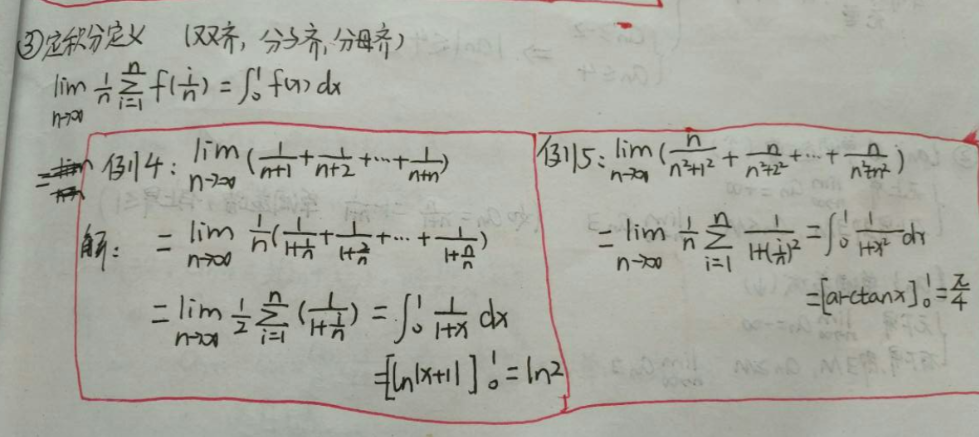 ③定积分定义 (双齐,分子齐,分母齐)
lim_{n→∞} \frac{1}{n} \sum_{i=1}^{n} f(\frac{i}{n}) = ∫_0^1 f(x) dx
例4: lim_{n→∞} (\frac{1}{n+1} + \frac{1}{n+2} + ⋯ + \frac{1}{n+n})
解: = lim_{n→∞} \frac{1}{n} (\frac{1}{1+\frac{1}{n}} + \frac{1}{1+\frac{2}{n}} + ⋯ + \frac{1}{1+\frac{n}{n}})
= lim_{n→∞} \frac{1}{2} \sum_{i=1}^{n} (\frac{1}{1+\frac{i}{n}}) = ∫_0^1 \frac{1}{1+x} dx
= [ln|x+1|]_0^1 = ln2
例5: lim_{n→∞} (\frac{n}{n^2+1^2} + \frac{n}{n^2+2^2} + ⋯ + \frac{n}{n^2+n^2})
= lim_{n→∞} \frac{1}{n} \sum_{i=1}^{n} \frac{1}{1+(\frac{i}{n})^2} = ∫_0^1 \frac{1}{1+x^2} dx
= [arctanx]_0^1 = \frac{π}{4}